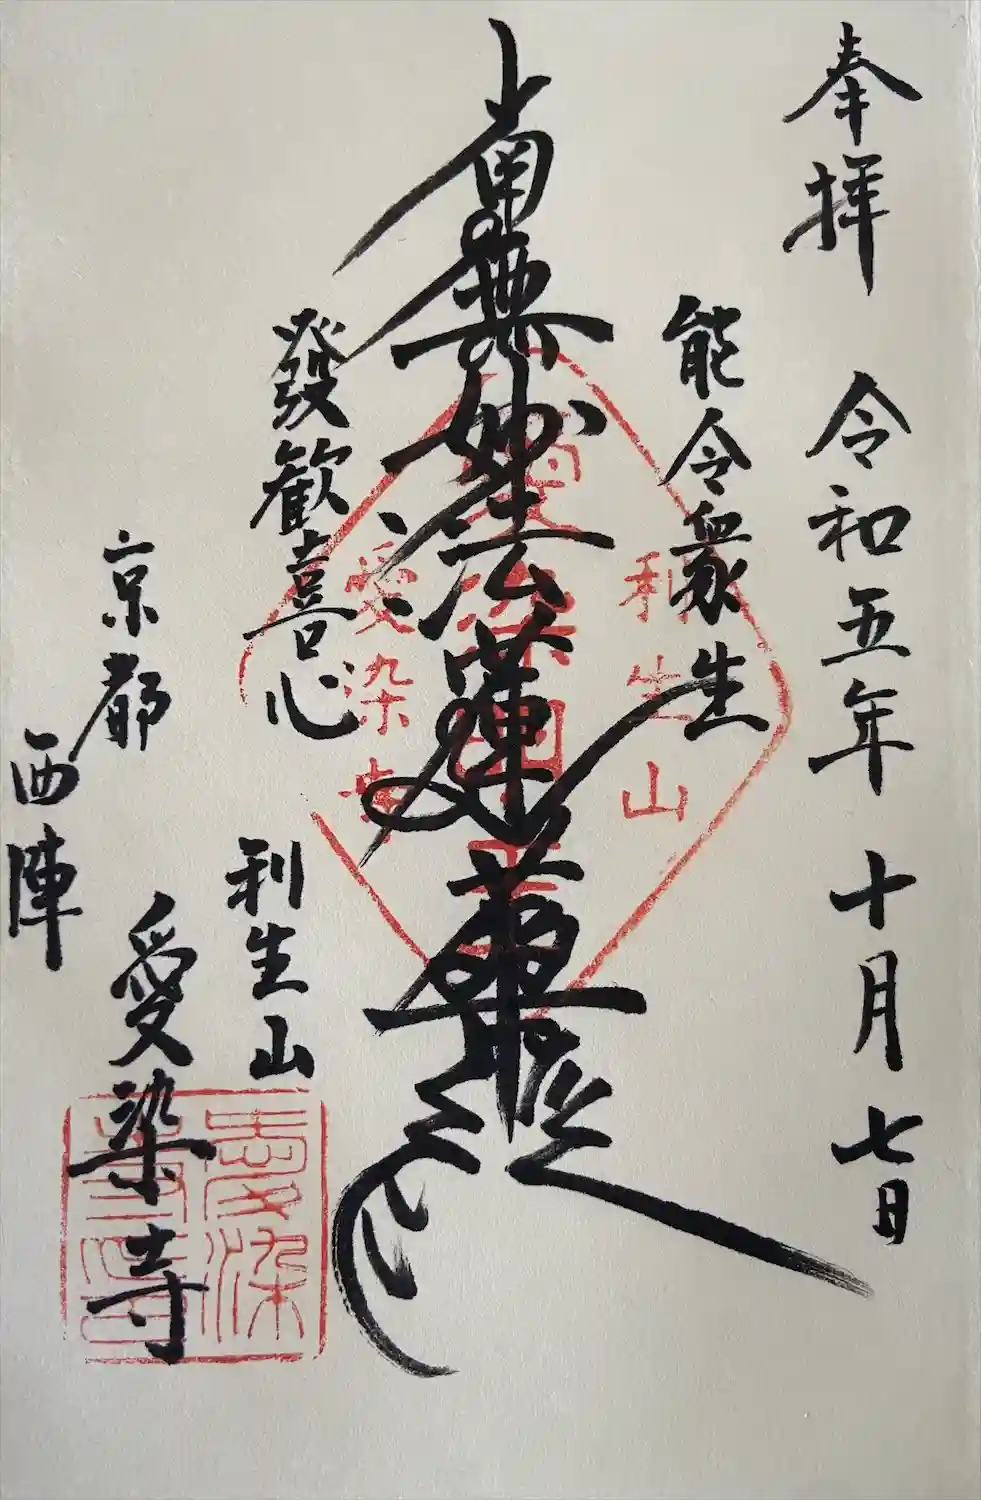 奉拝 令和五年 十月 七日
能令衆生
南無妙法蓮華経
發歓喜心
利生山
京都
西陣
愛染寺
利生山
愛染明王
愛染寺
愛染